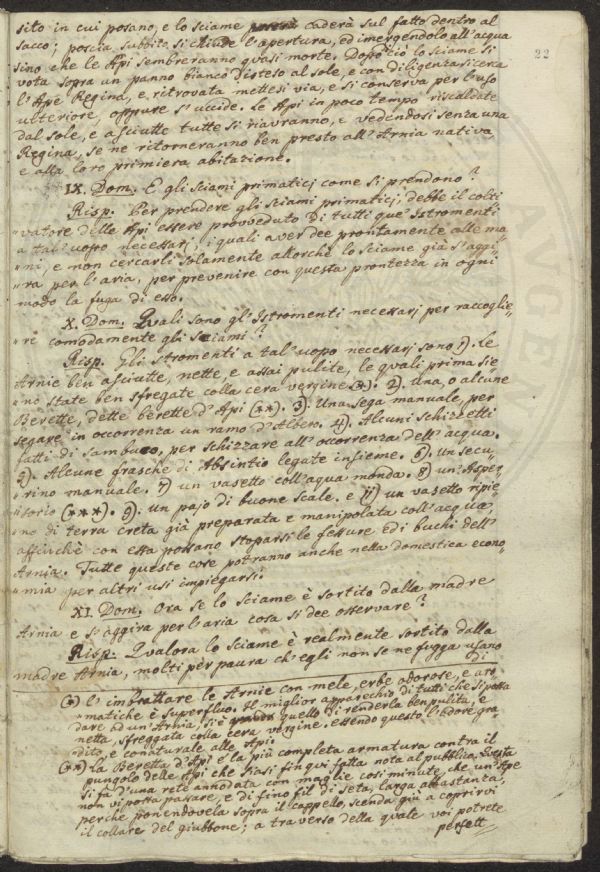 22
sito in cui posano, e lo sciame caderà sul fatto dentro al
sacco; poscia subbito si chiude l'apertura, ed imergendolo all'acqua
sino che le Api sembreranno quasi morte. Dopo ciò lo sciame si
vota sopra un panno bianco disteso al sole, e con diligenza si cerca
l'Ape Regina, e ritrovata mettesi via, e si conserva per l'uso
ulteriore, oppure s'uccide. Le Api in poco tempo riscaldate
dal sole, e asciutte tutte si riavranno, e vedendosi senza una
Regina, se ne ritorneranno ben presto all'Arnia nativa
e alla loro primiera abitazione.
IX. Dom. E gli sciami primaticj come si prendono?
Risp. Per prendere gli sciami primaticj, debbe il colti
"vatore delle Api essere provveduto di tutti que' Istromenti
a tal' uopo necessarj, i quali aver dee prontamente alle ma
"ni, e non cercarli solamente allorchè lo sciame già s'aggi
"ra per l'aria, per prevenire con questa prontezza in ogni
modo la fuga di esso.
X. Dom. Quali sono gl'Istromenti necessarj per raccoglie
"re comodamente gli sciami?
Risp. Gli stromenti a tal'uopo necessarj sono 1). Le
Arnie ben asciutte, nette, e assai pulite, le quali prima sie
"no state ben sfregate colla cera vergine (*). 2). Una, o alcune
Berette, dette berette d'Api (**). 3). Una sega manuale, per
segare in occorrenza un ramo d'Albero. 4). Alcuni schizzetti
fatti di sambuco, per schizzare all'occorrenza dell'acqua.
5). Alcune frasche di Absintio legate insieme. 6). Un secu
"rino manuale. 7) un vasetto coll'aqua monda. 8) un'Asper
"sorio (***). 9). un pajo di buone scale, e un vasetto ripie
"no di terra creta già preparata e manipolata coll'acqua,
affinchè con essa possano stoparsi le fessure ed i buchi dell'
Arnia. Tutte queste cose potranno anche nella domestica econo
"mia per altri usi impiegarsi.
XI. Dom. Ora se lo sciame è sortito dalla madre
Arnia e s'aggira per l'aria cosa si dee osservare?
Risp. Qualora lo sciame è realmente sortito dalla
madre Arnia, molti per paura ch'egli non se ne fugga usano
di
(*) L'imbrattare le Arnie con mele, erbe odorose, e aro
"matiche è superfluo. Il miglior apparechio di tutti che si possa
dare ad un'Arnia, si è quello di renderla ben pulita, e
netta, sfreggata colla cera vergine, essendo questo l'odore gra
"dito, e conaturale alle Api.
(**) La Beretta d'Api è la più completa armatura contro il
pungolo delle Api che siasi fin qui fatta nota al pubblico. Questa
si fa d'una rete annodata con maglie così minute, che un'Ape
non vi possa passare, e di fino fil di seta, larga abbastanza,
perche ponendovela sopra il cappello, scenda giù a coprirvi
il collare del giubbone; a traverso della quale voi potrete
perfett